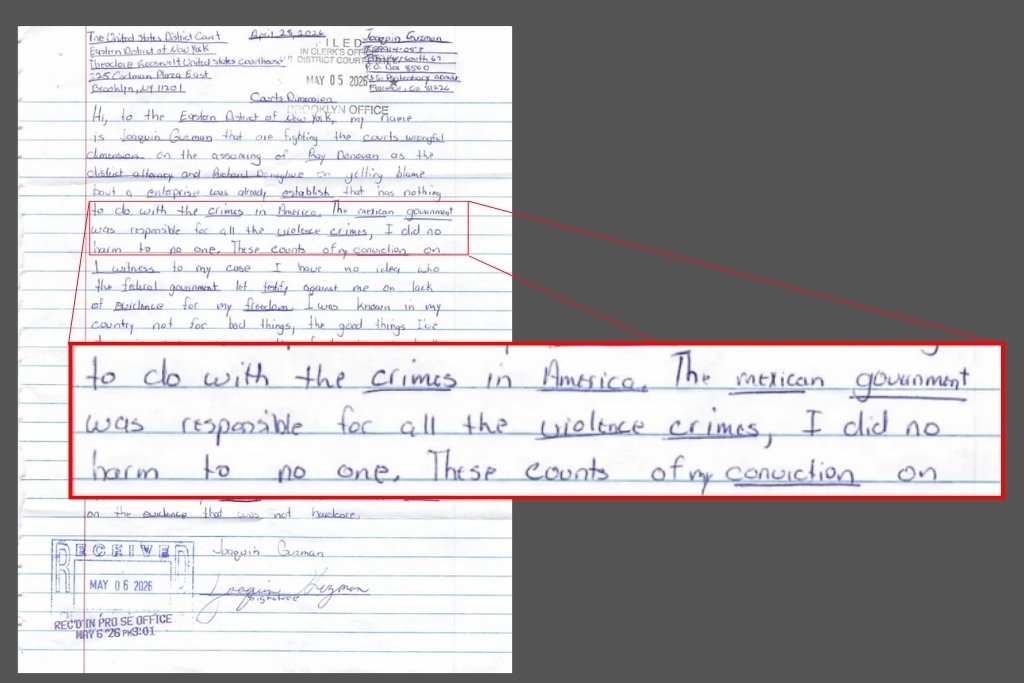 The United States District Court
Eastern District of New York
Theodore Roosevelt United States Courthouse
225 Cadman Plaza East
Brooklyn, NY 11201
April 23, 2026
FILED
IN CLERK'S OFF
DISTRICT COURT
MAY 05 2026
BROOKLYN OFFICE
Joaquin Guzman
P.O. Box 8500
U.S. Penitentiary ADMAX
Florence, CO 81226
Courts Dimension
Hi, to the Eastern District of New York, my name
is Joaquin Guzman that are fighting the courts wrongful
dimension on the assuming of Ray Donovan as the
district attorney and Richard Donoghue on yelling blame
bout a enterprise was already establish that has nothing
to do with the crimes in America. The mexican government
was responsible for all the violence crimes, I did no
harm to no one. These counts of my conviction on
1 witness to my case I have no idea who
the federal government let testify against me on lack
of evidence for my freedom I was known in my
country not for bad things, the good things I've
to do with the crimes in America. The mexican government
was responsible for all the violence crimes, I did no
harm to no one. These counts of my conviction on
on the evidence that was not hardcore.
Joaquin Guzman
Joaquin Guzman
Signature
RECEIVED
MAY 06 2026
REC'D IN PRO SE OFFICE
MAY 6 '26 PM3:01